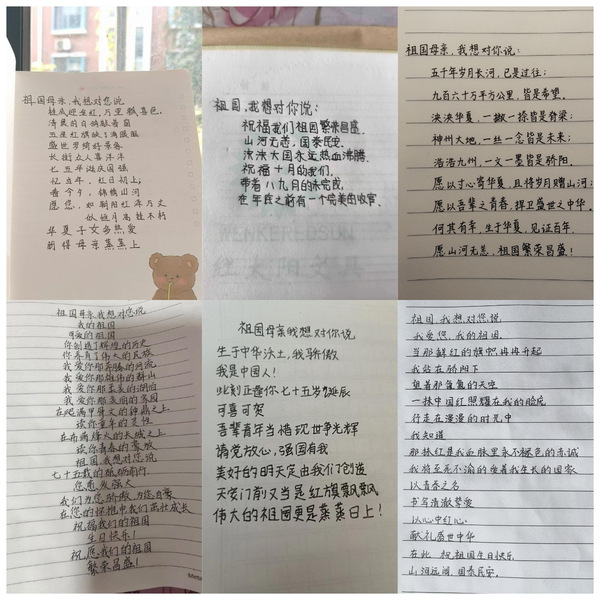 祖国母亲,我想对您说
五星红旗
盛世梦绮好景色
长街众人喜洋洋
七五华诞庆国强
忆当年,红日初上
看今日,锦绣山河
愿您,如朝阳红洋万丈
似皓月高挂不朽
华夏子女多热爱
前得母亲蒸蒸上
祖国,我想对你说:
祝福我们祖国繁荣昌盛.
山河无恙,国泰民安.
泱泱大国永远热血沸腾.
祝福十月的我们.
带着八九月的未完成.
在年底之前有一个完美的收官.
WENKEREDSUN
祖国母亲,我想对您说:
五千年岁月长河,已是过往;
九百六十万平方公里,皆是希望。
泱泱华夏,一撇一捺皆是脊梁;
神州大地,一丝一念皆是未来;
浩浩九州,一文一墨皆是骄阳。
愿以寸心寄华夏,且将岁月赠山河;
愿以吾辈之青春,捍卫盛世之中华。
何其有幸,生于华夏,见证百年.
愿山河无恙,祖国繁荣昌盛!
祖国母亲,我想对您说
我的祖国
可爱的祖国
你创造了辉煌的历史
你养育了伟大的民族
我爱你那奔腾的河流
我爱你那雄伟的群山
我爱你那柔美的湖泊
我爱你那美丽的家园
在爬满甲骨文的钟鼎之上
读你童年的灵性
在布满烽火的长城之上
读你青春的豪放
祖国,我想对您说
七十五载的砥砺前行
您愈发强大
我们为您骄傲,为您自豪
在您的怀抱中我们茁壮成长
祝福我们的祖国
生日快乐!
祝愿我们的祖国
繁荣昌盛!
祖国母亲我想对你说
生于中华沃土,我骄傲
我是中国人!
此刻正逢你七十五岁诞辰
可喜可贺
吾辈青年当惜现世争光辉
请党放心,强国有我
美好的明天定由我们创造
天安门前又当是红旗飘飘
伟大的祖国更是蒸蒸日上!
祖国,我想对您说
我爱您,我的祖国.
当那鲜红的旗帜冉冉升起
我站在骄阳下
望着那蓝蓝的天空
一抹中国红照耀在我的脸庞
行走在漫漫的时光中
我知道
那抹红是我血脉里永不褪色的赤诚
我将至死不渝的爱着我生长的国家
以青春之名
书写清澈挚爱
以心中红心
献礼盛世中华
在此,祝祖国生日快乐
山河远阔,国泰民安.